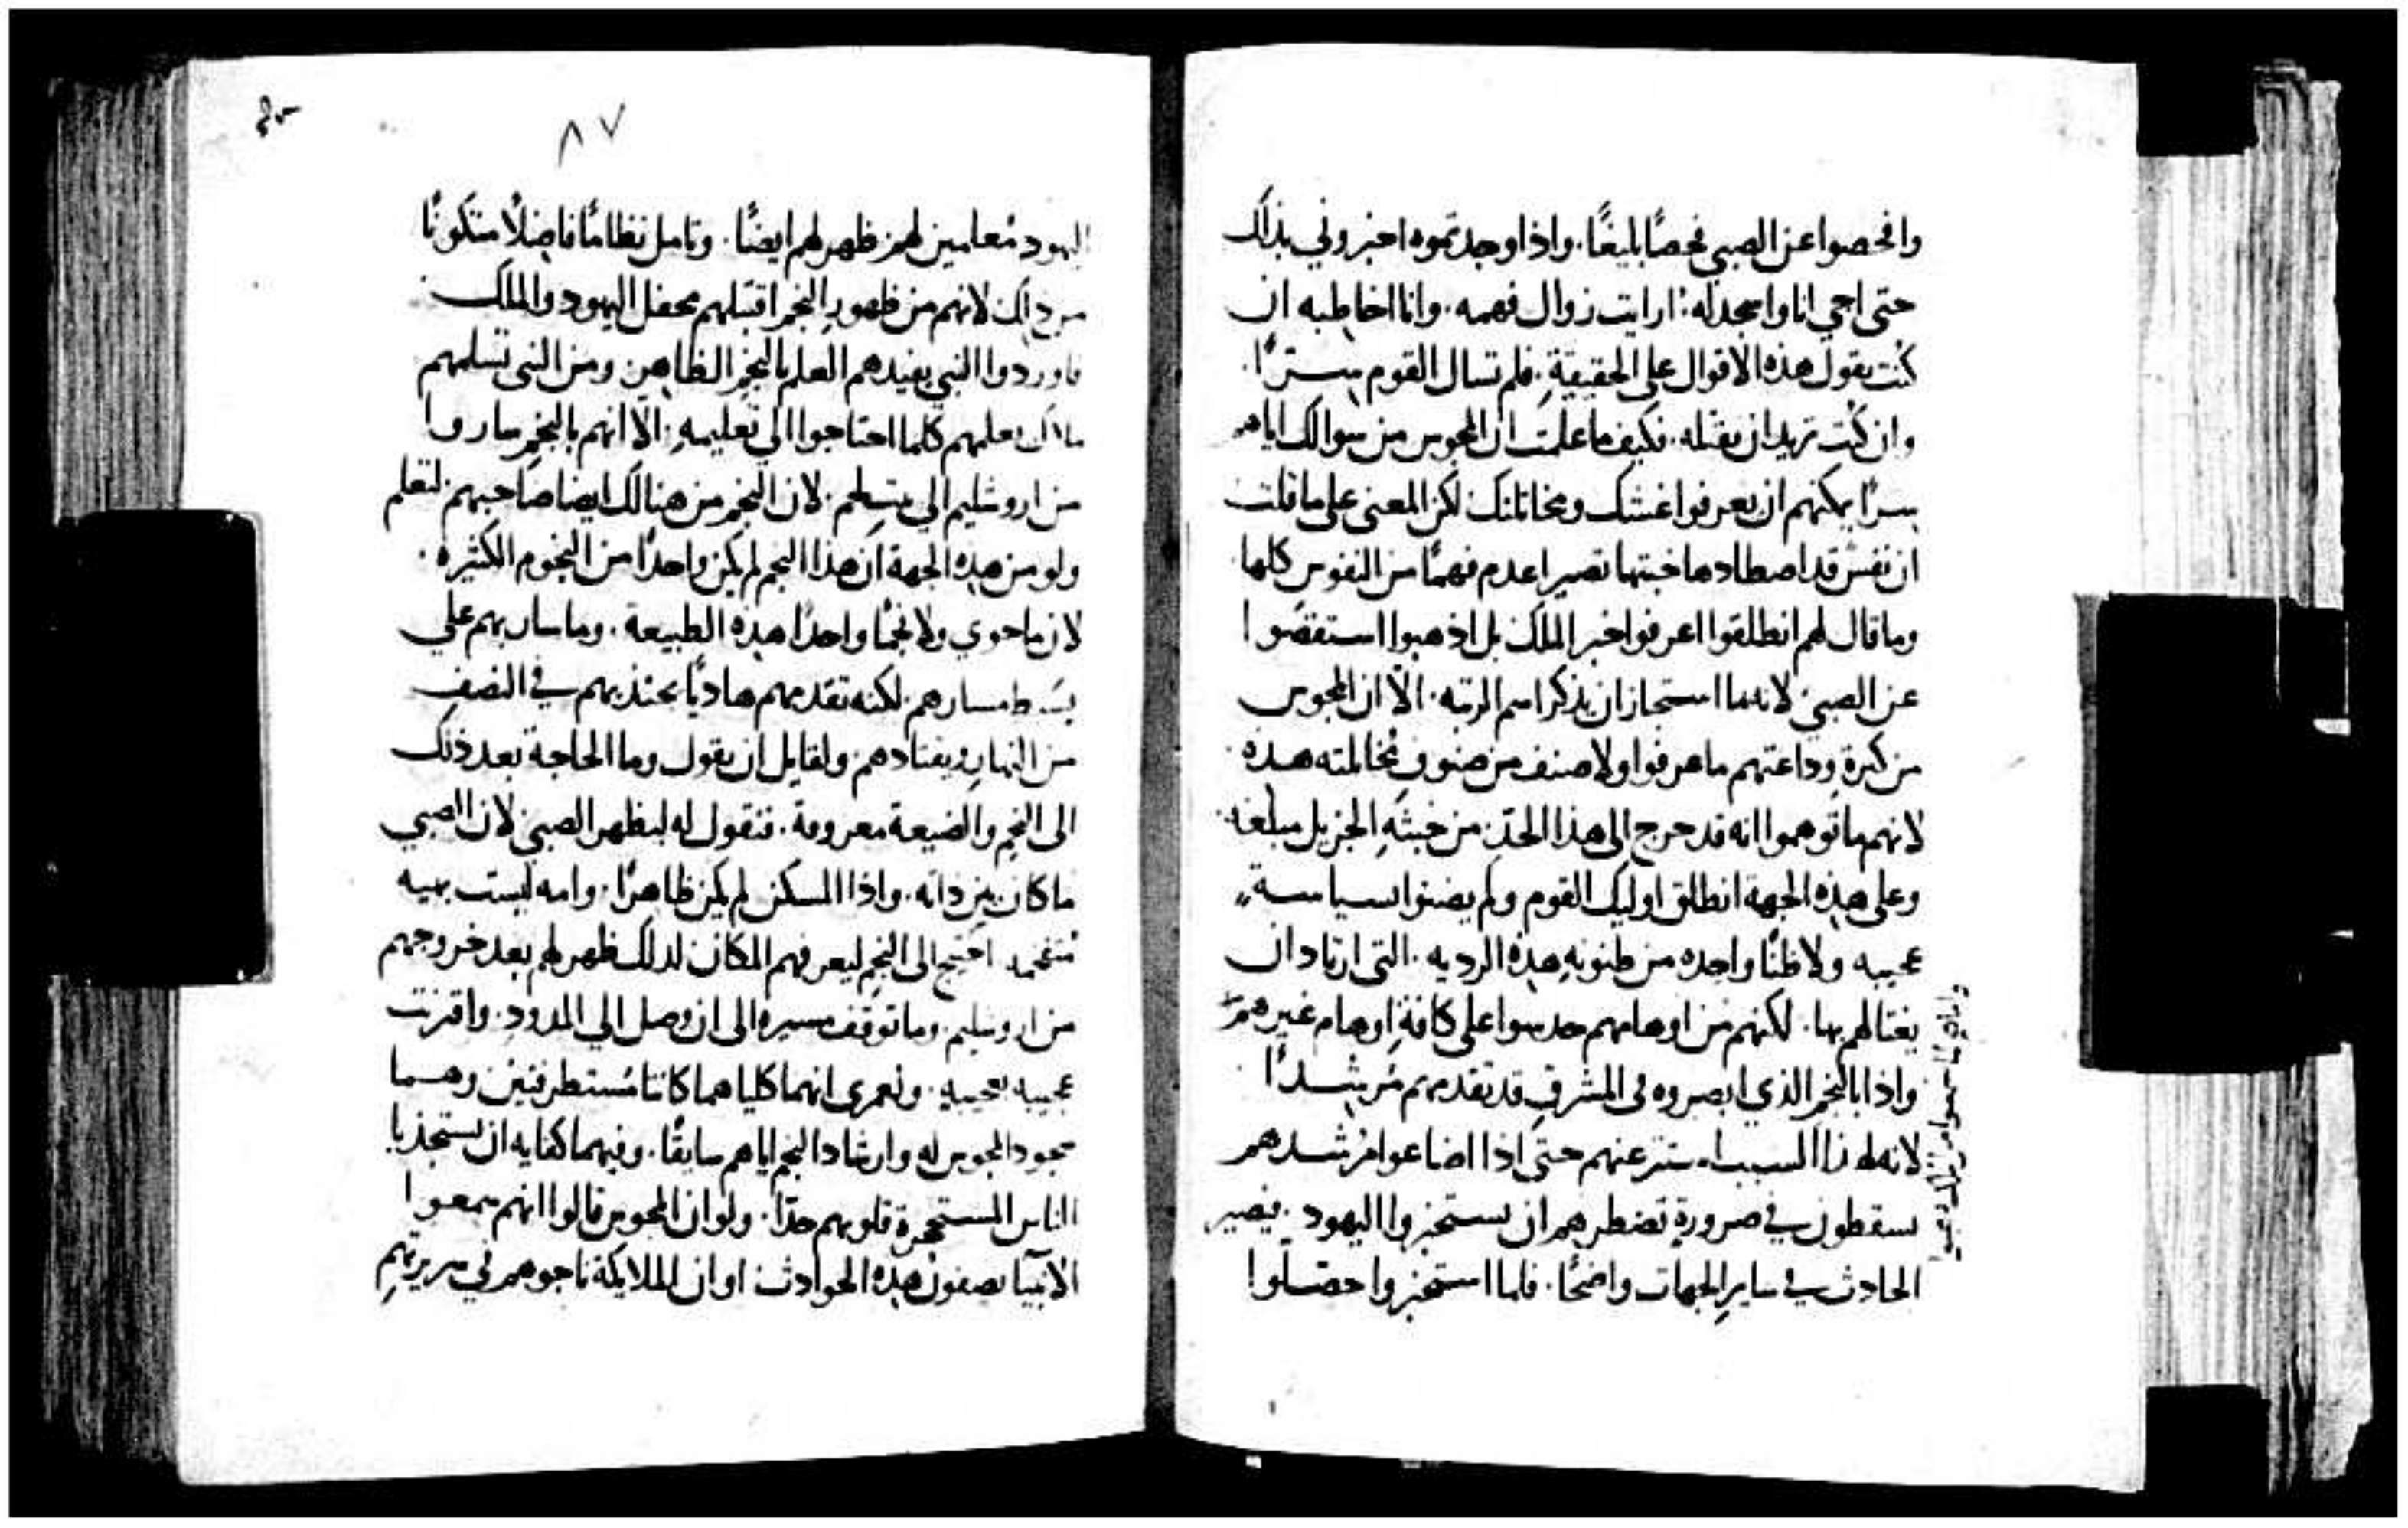 وافحصوا عن الصبي فحصًا بليغًا. واذا وجدتموه اخبروني بذلك
حتى اجي انا واسجد له. ارايت زوال فهمه. وانا اخاطبه ان
كنت تقول هذه الاقوال على الحقيقةِ. فلم تسال القوم مستترًا.
وان كنت تريد ان تقتله. فكيف ما علمت ان المجوس من سوالك اياهم
سرًا يمكنهم ان يعرفوا غشك ومخاتلتك لكن المعنى على ما قلت
ان نفس قد اصطادها خبثها تصير اعدم فهمًا من النفوس كلها
وما قال لهم انطلقوا اعرفوا خبر الملك بل اذهبوا استقصوا
عن الصبي لانه ما استجاز ان يذكر اسم الرتبه. الّا ان المجوس
من كثرة وداعتهم ما عرفوا ولا صنف من صنوف مُخاتلته هذه
لانهم ما توهموا انه قد خرج الى هذا الحدّ من خبثهِ الجزيل مبلغه
وعلى هذه الجهة انطلق اوليك القوم ولم يضنوا بسياسة
عجيبه ولا ظنًا واحده من ظنونهِ هذه الرديه. التى ارتاد ان
يغتالهم بها. لكنهم من اوهامهم حدسوا على كافةِ اوهام غيرهم
واذا بالنجم الذي ابصروه فى المشرقِ قد تقدمهم مُرشدًا
لانه لهذا السبب استتر عنهم حتى اذا اضاعوا مُرشدهم
يسقطون في ضرورةٍ تضطرهم ان يستخبروا اليهود. فيصير
الحادث في سايرِ الجهات واضحًا. فلما استخبروا وحصّلوا
٨٧
اليهود مُعلمين لهم ظهر لهم ايضًا. وتامل نظامًا فاضلًا متكونًا
من ذلك لانهم من ظهور النجم اقتبلهم محفل اليهود والملك
فاوردوا النبي يفيدهم العلم بالنجم الظاهر ومن النبى تسلمهم
ملاك يعلمهم كلما احتاجوا الى تعليمهِ. الّا انهم بالنجم ساروا
من اروشليم الي بيت لحم. لان النجم من هنالك ايضا صاحبهم لتعلم
ولو من هذه الجهة ان هذا النجم لم يكن واحدًا من النجوم الكثيره.
لان ما حوي ولا نجمًا واحدًا هذه الطبيعة. وما سار بهم على
بسيط مسارهم. لكنه تقدمهم هاديًا يجتذبهم في النصفِ
من النهارِ ويقتادهم ولقايل ان يقول وما الحاجة بعد ذلك
الى النجمِ والضيعة معروفة. فنقول له ليظهر الصبي لان الصبي
ما كان بين ذاته. واذا المسكن لم يكن ظاهرًا. وامه ليست بهيه
مُتفخمه احتيج الى النجم ليعرفهم المكان لذلك ظهر لهم بعد خروجهم
من اروشليم. وما توقف مسيره الى ان وصل الي المدودِ. واقترنت
عجيبه بعجيبه. ولعمري انهما كلياهما كانتا مُستطرفتين وهما
سجود المجوس له وارشاد النجم اياهم سابقًا. وفيهما كفايه ان يستجذبا
الناس المستحجرة قلوبهم جدًا. ولو ان المجوس قالوا انهم سمعوا
الانبيا يصفون هذه الحوادث او ان الملايكة ناجوهم في سريرتهمِ